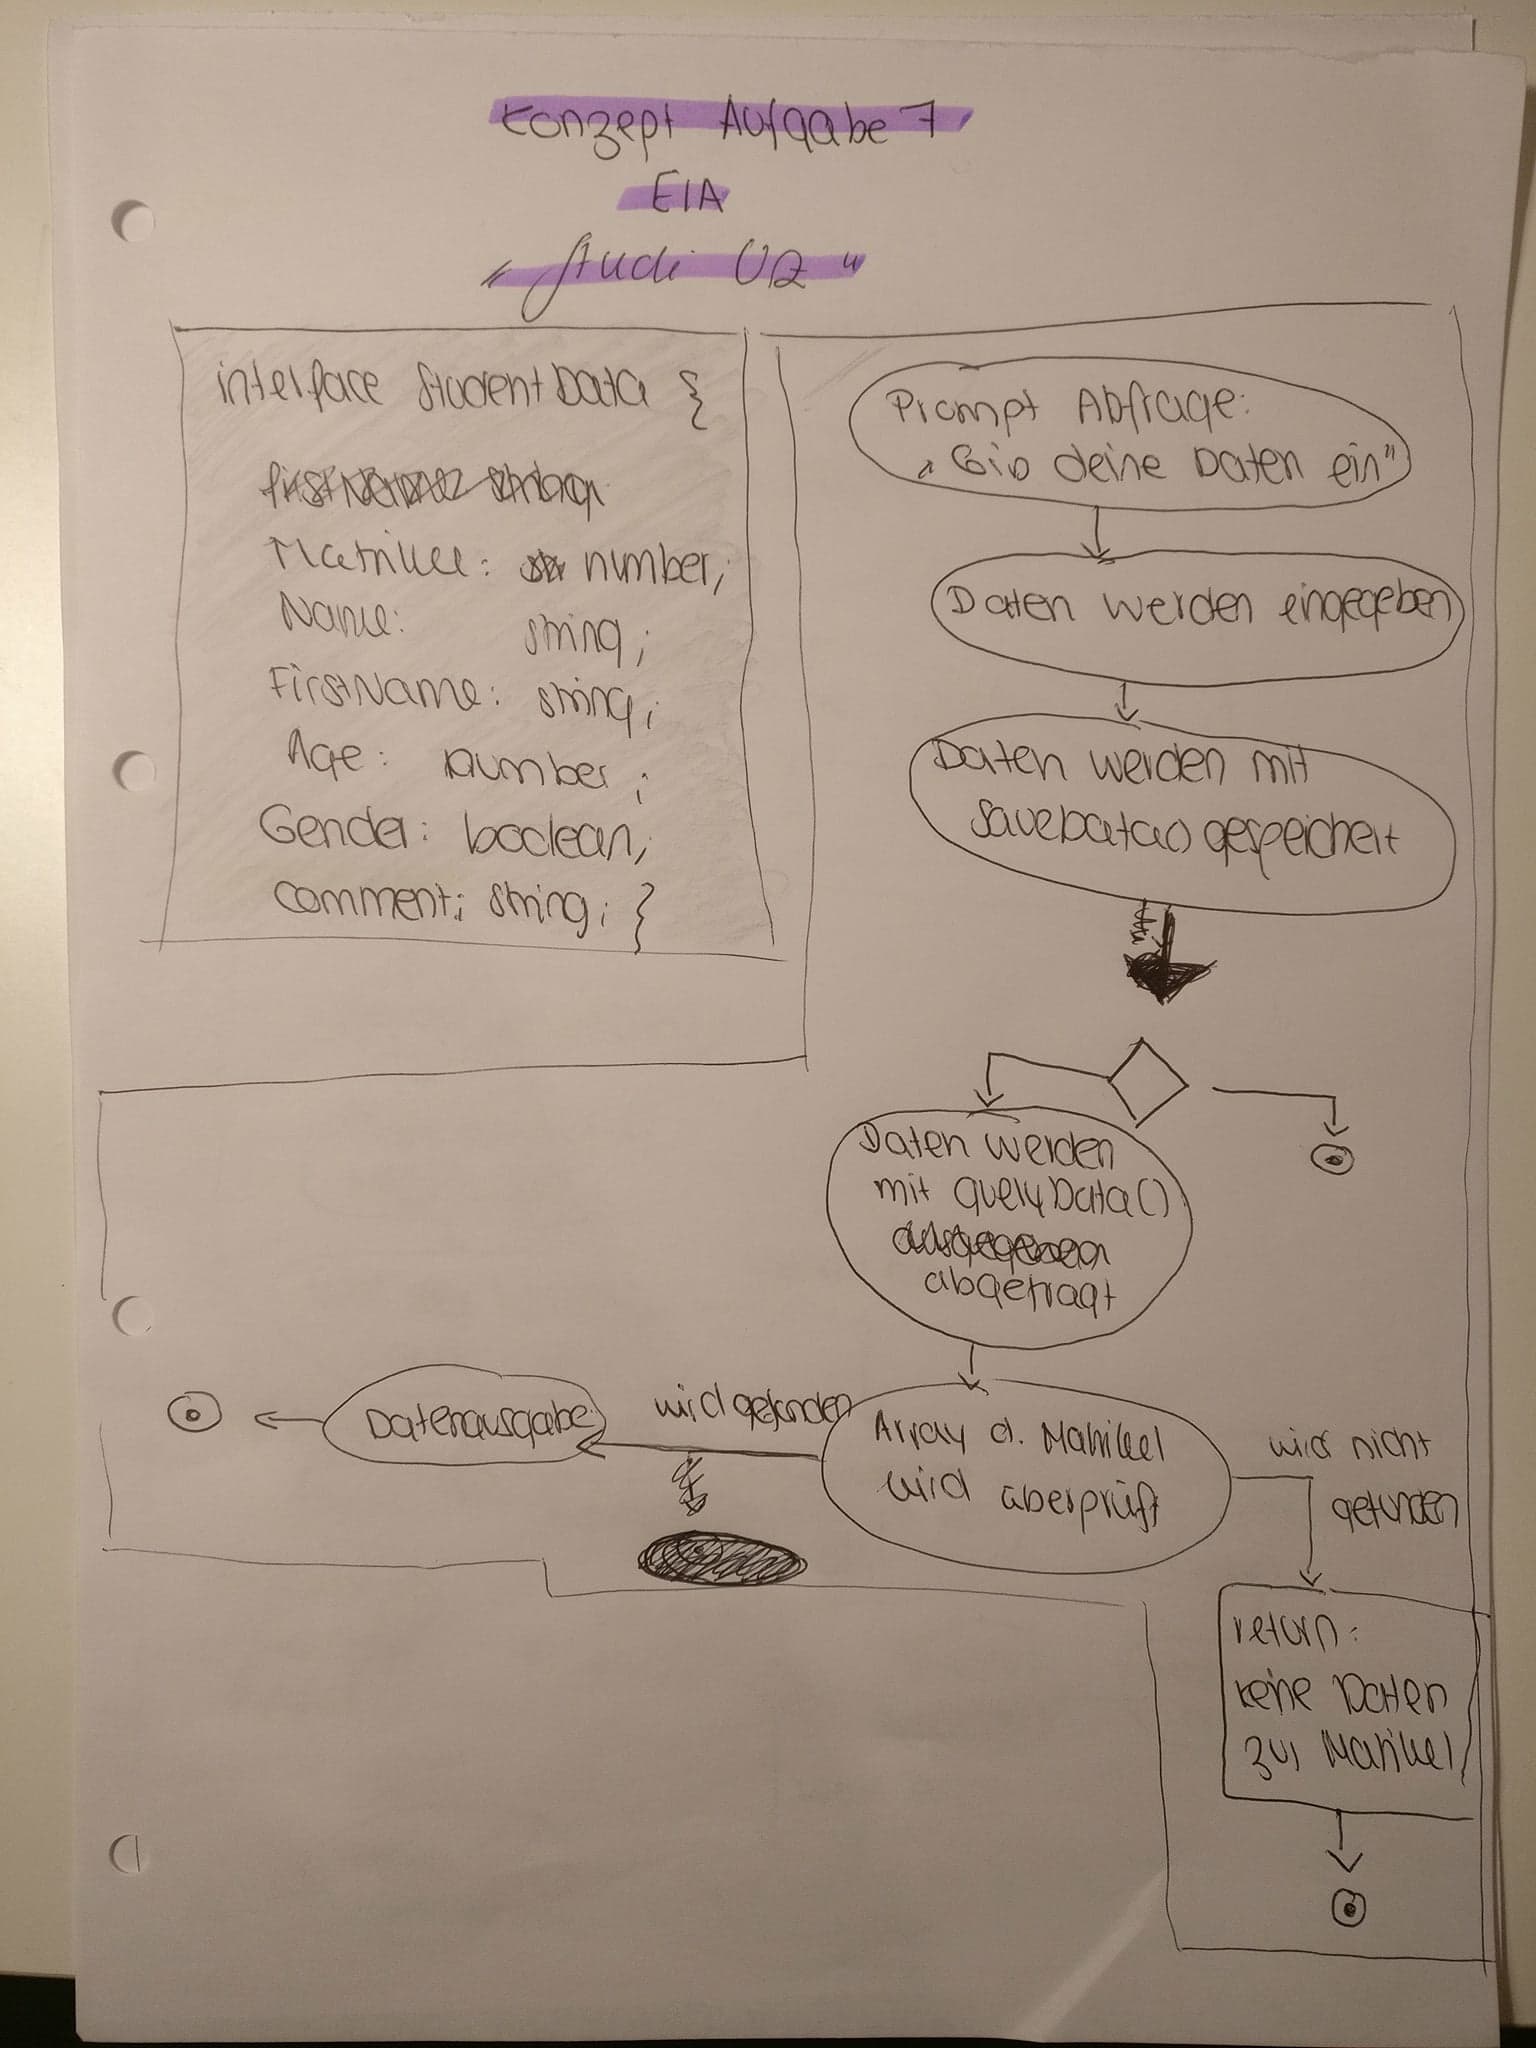 Konzept Aufgabe 7
EIA
„Studi VZ"
interface StudentData {
Matrikel: number;
Name: string;
FirstName: string;
Age: number;
Gender: boolean;
comment: string; }
Prompt Abfrage:
„Gib deine Daten ein"
Daten werden eingegeben
Daten werden mit
saveData() gespeichert
Daten werden
mit queryData()
abgefragt
Array d. Matrikel
wird überprüft
wird gefunden
Datenausgabe
wird nicht
gefunden
return:
keine Daten
zur Matrikel